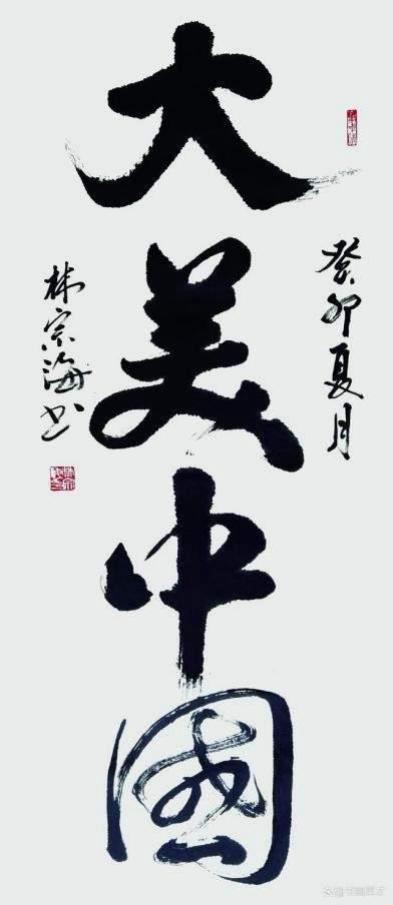 癸卯夏月
大美中國
林宗海书